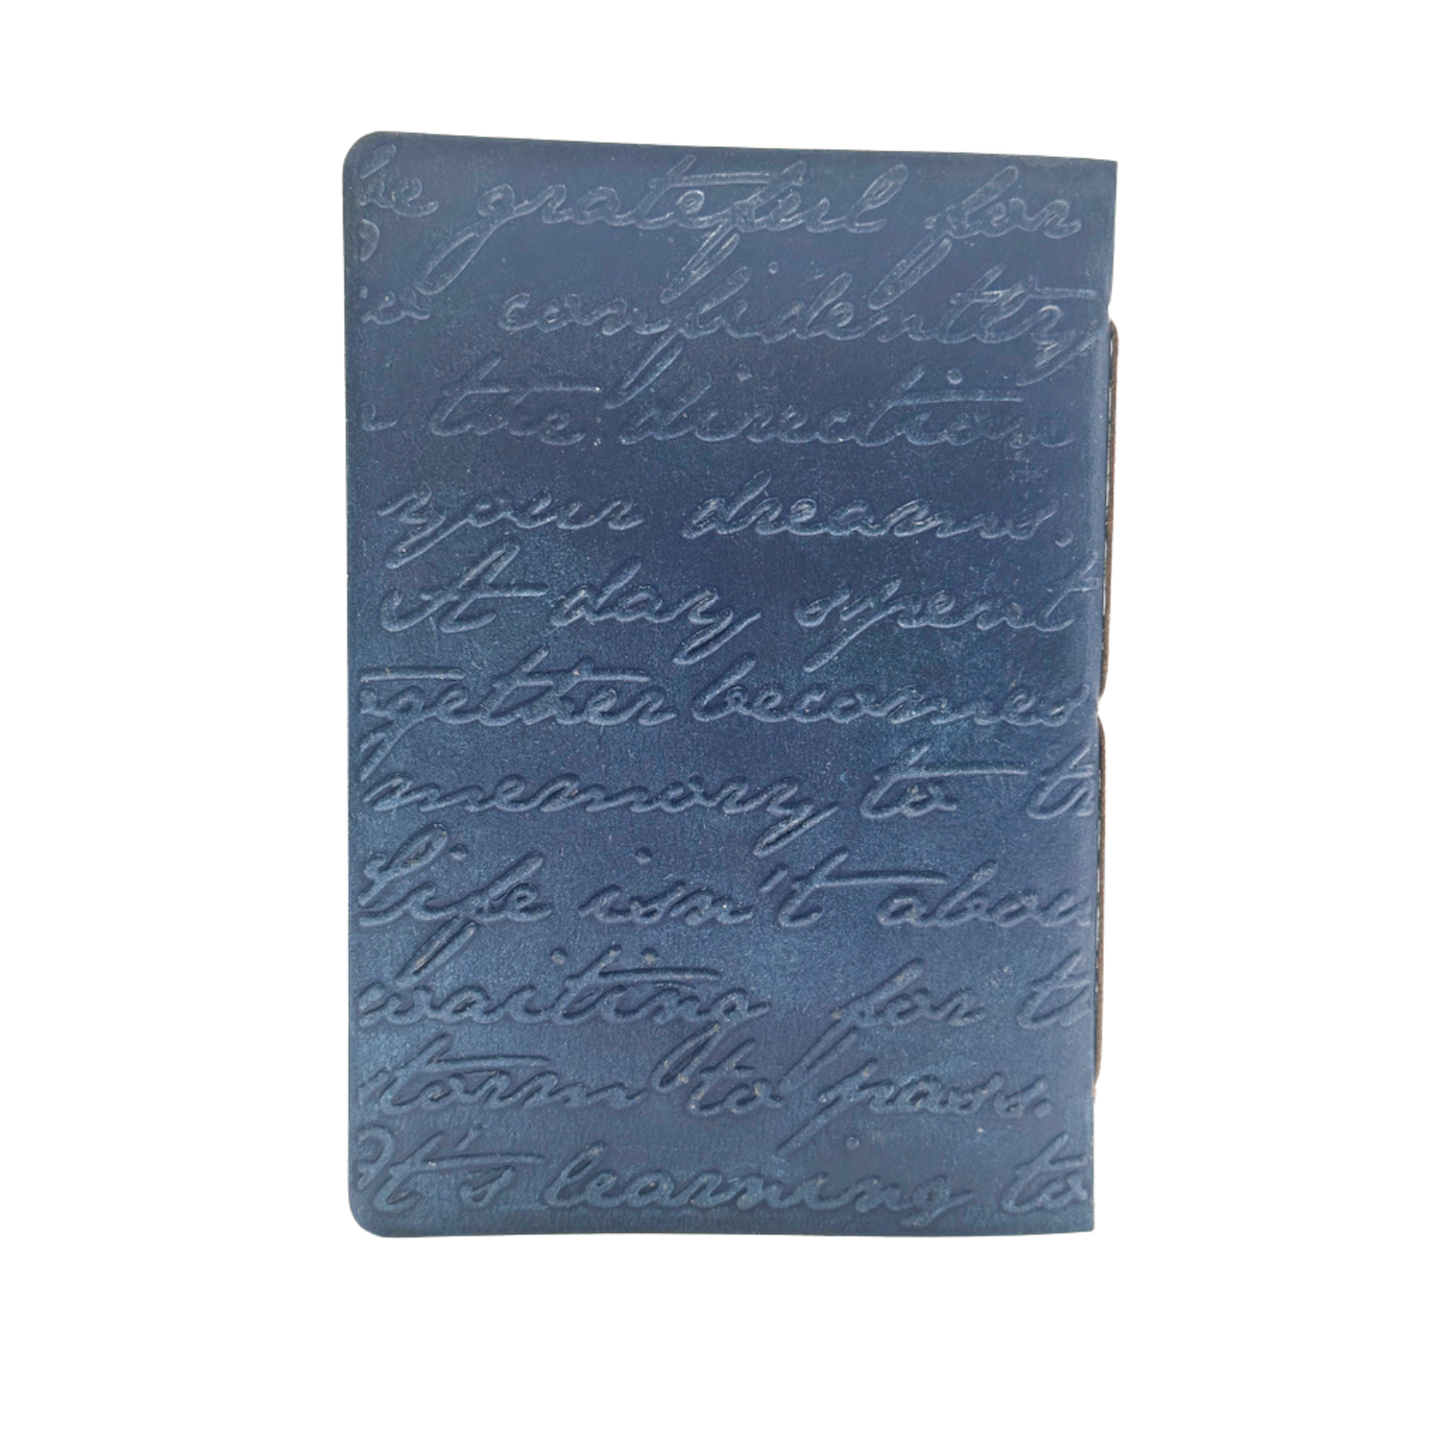 be grateful for
confidently
the direction
your dreams.
A day spent
ogether becomes
memory to tr
Life isn't abou
waiting for t
torm to pass.
It's learning to